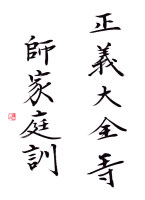 正義大全寺
師家庭訓